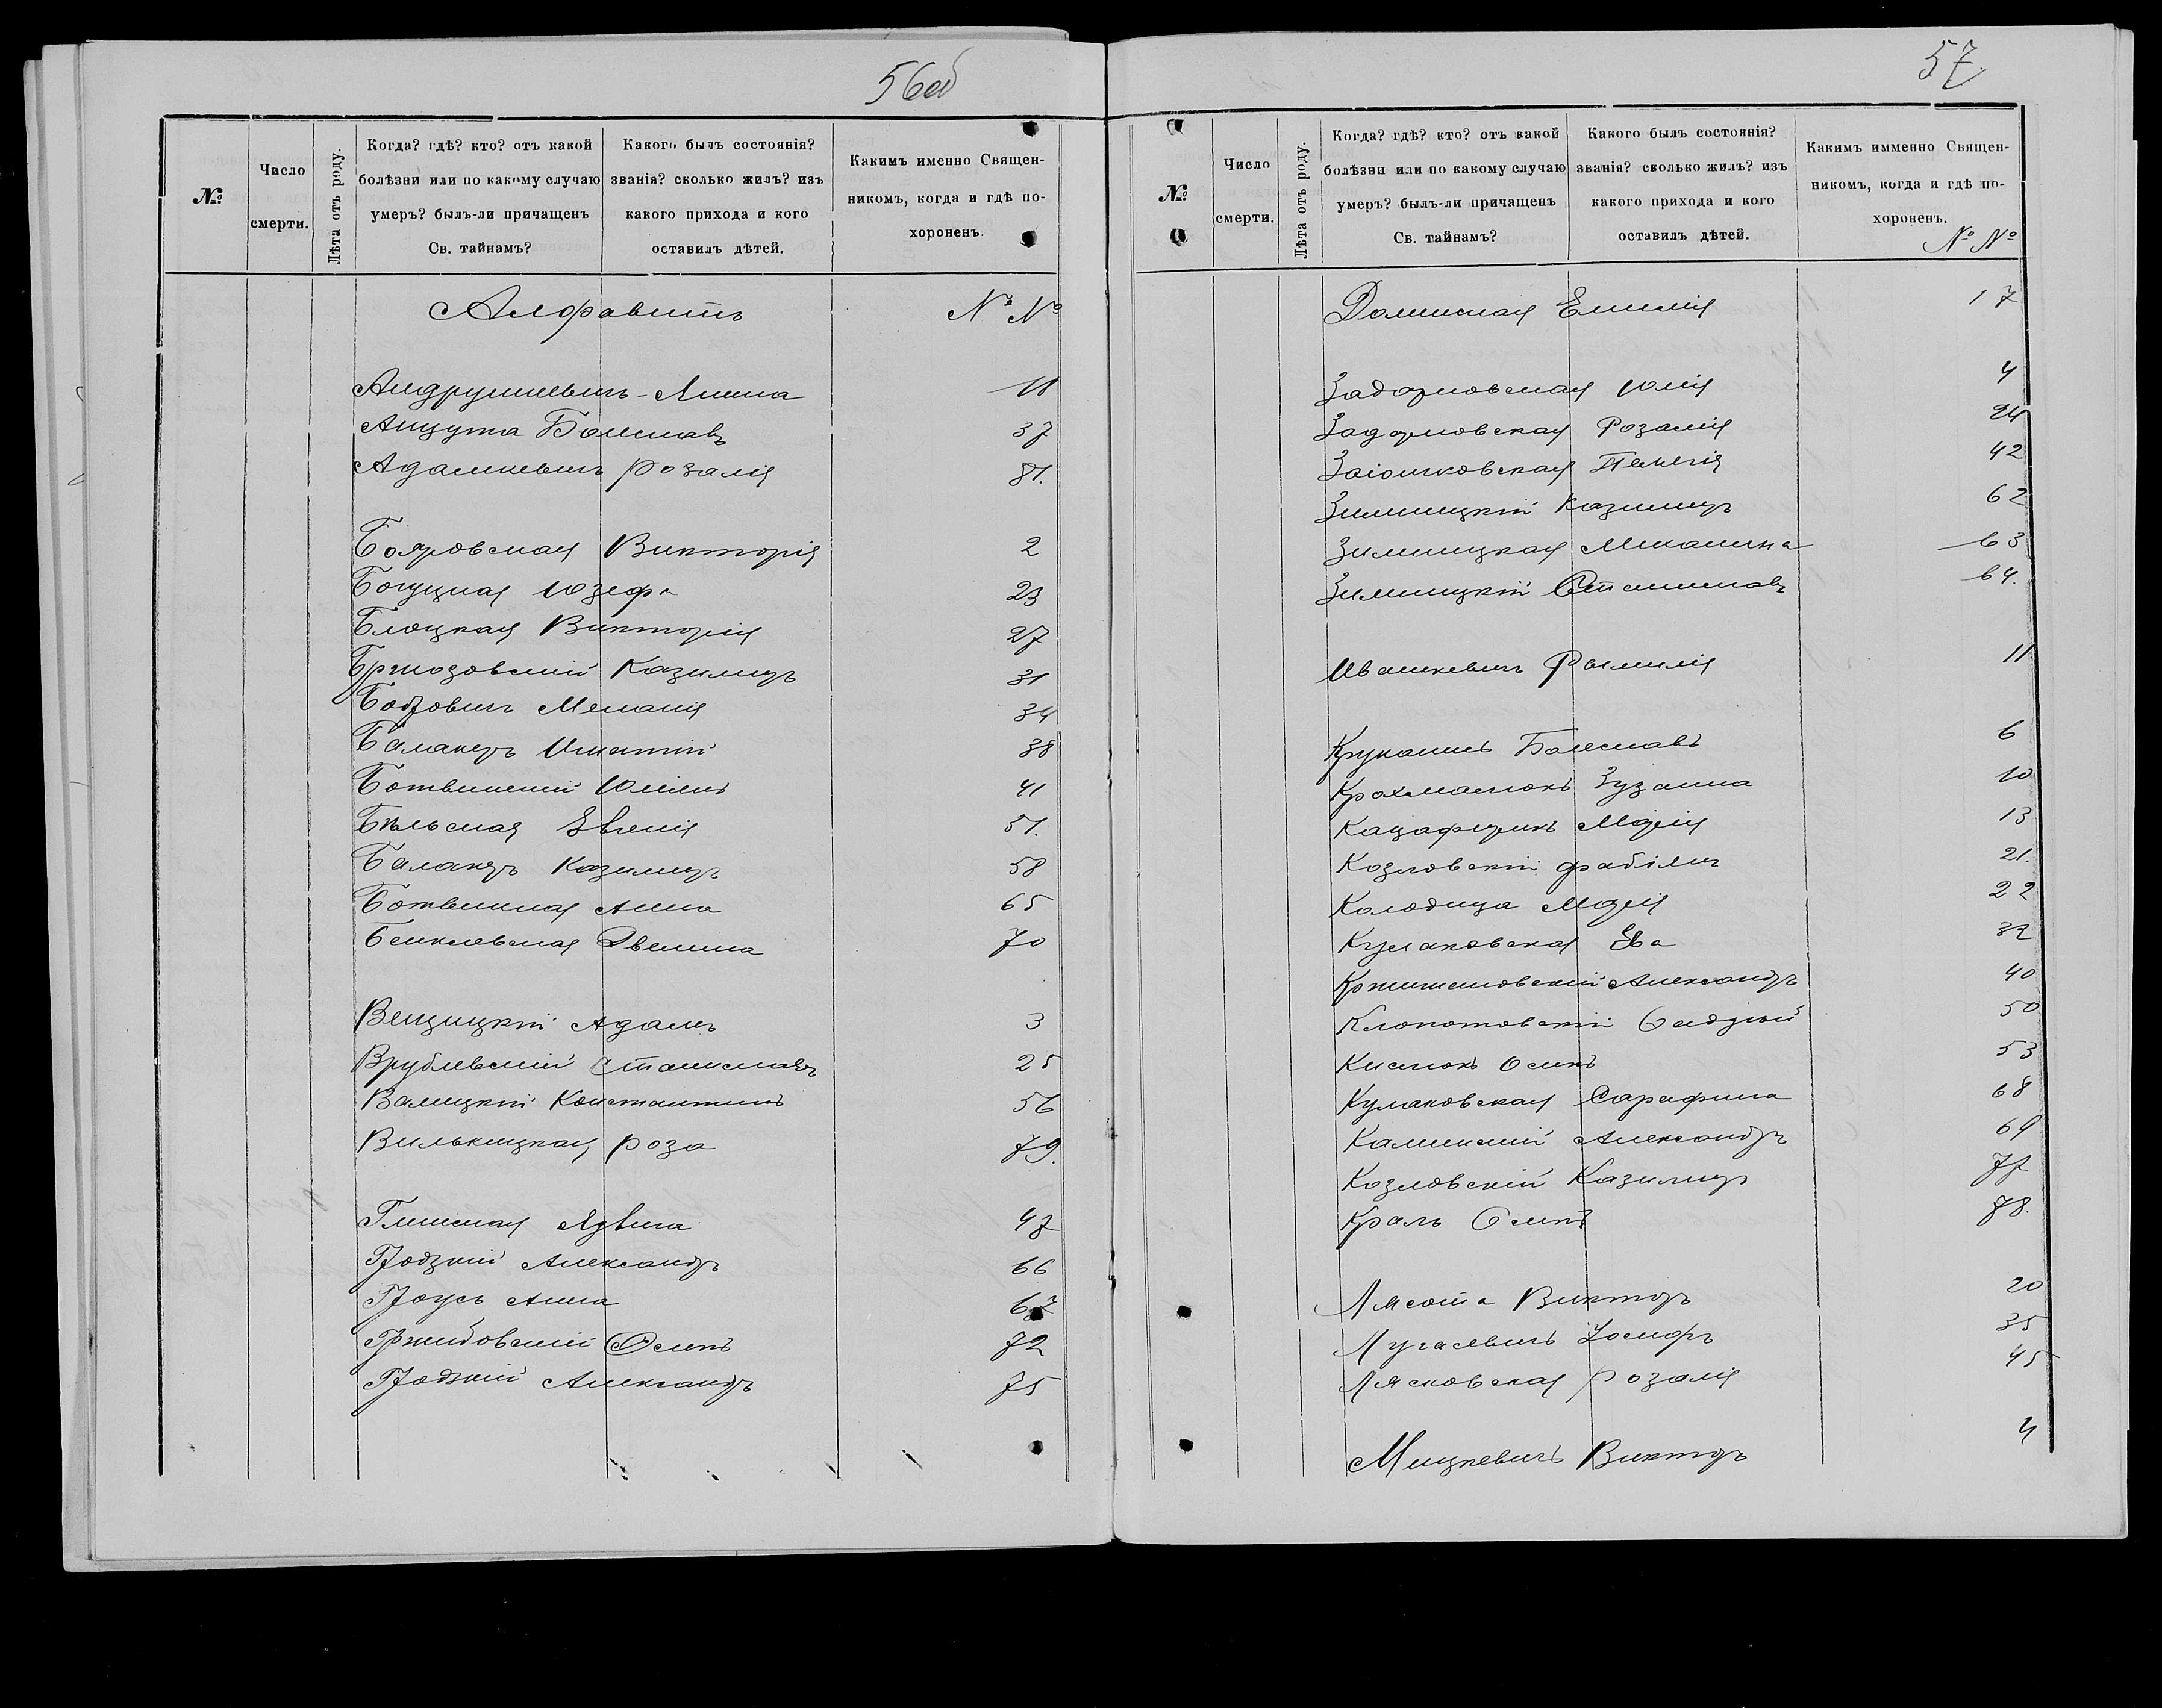 56об
№
Число смерти.
Лѣта отъ роду.
Когда? гдѣ? кто? отъ какой болѣзни или по какому случаю умеръ? былъ-ли причащенъ Св. тайнамъ?
Какого былъ состоянія? званія? сколько жилъ? изъ какого прихода и кого оставилъ дѣтей.
Какимъ именно Священникомъ, когда и гдѣ похороненъ.
Алфавитъ № №
Андрушкевичъ - Анна 11
Анцута Болеславъ 37
Адамкевичъ Розалія 81.
Бояровская Викторія 2
Богуцкая Юзефа 23
Блоцкая Викторія 27
Бржозовскій Казимиръ 31
Меланія 34
Баландъ Игнатій 38
Ботвинскій 41
Бѣльская Евгенія 51.
Казимиръ 58
Анна 65
70
Венцицкій Адамъ 3
Врублевскій Станиславъ 25
Валицкій Константинъ 56
Вилькицкая Роза 79.
Глинская Ядвига 47
Гродзкій Александръ 66
Анна 67
Гржибовскій Осипъ 72
Гродзкій Александръ 75
57
№
Число смерти.
Лѣта отъ роду.
Когда? гдѣ? кто? отъ какой болѣзни или по какому случаю умеръ? былъ-ли причащенъ Св. тайнамъ?
Какого былъ состоянія? званія? сколько жилъ? изъ какого прихода и кого оставилъ дѣтей.
Какимъ имменно Священникомъ, когда и гдѣ похороненъ.
№ №
Эмилія 17
Юлія 4
Розалія 24
42
Зилиницкій Казимиръ 62
Зилиницкая 63
Зилиницкій Станиславъ 64.
Ивашкевичъ 11
Болеславъ 6
Крохмалюкъ Зузанна 10
Марія 13
Козловскій Фабіянъ 21.
Колодница Марія 22
Кулаковская Ева 32
Кржижановскій Александръ 40
Клопотовскій 50
Кислюкъ Осипъ 53
Кулаковская Сарафина 68
Калинскій Александръ 69
Козловскій Казимиръ 77
Краль Осипъ 78.
Лясота Викторъ 20
Іосифъ 35
Лясковская Розалія 45
Мицкевичъ Викторъ